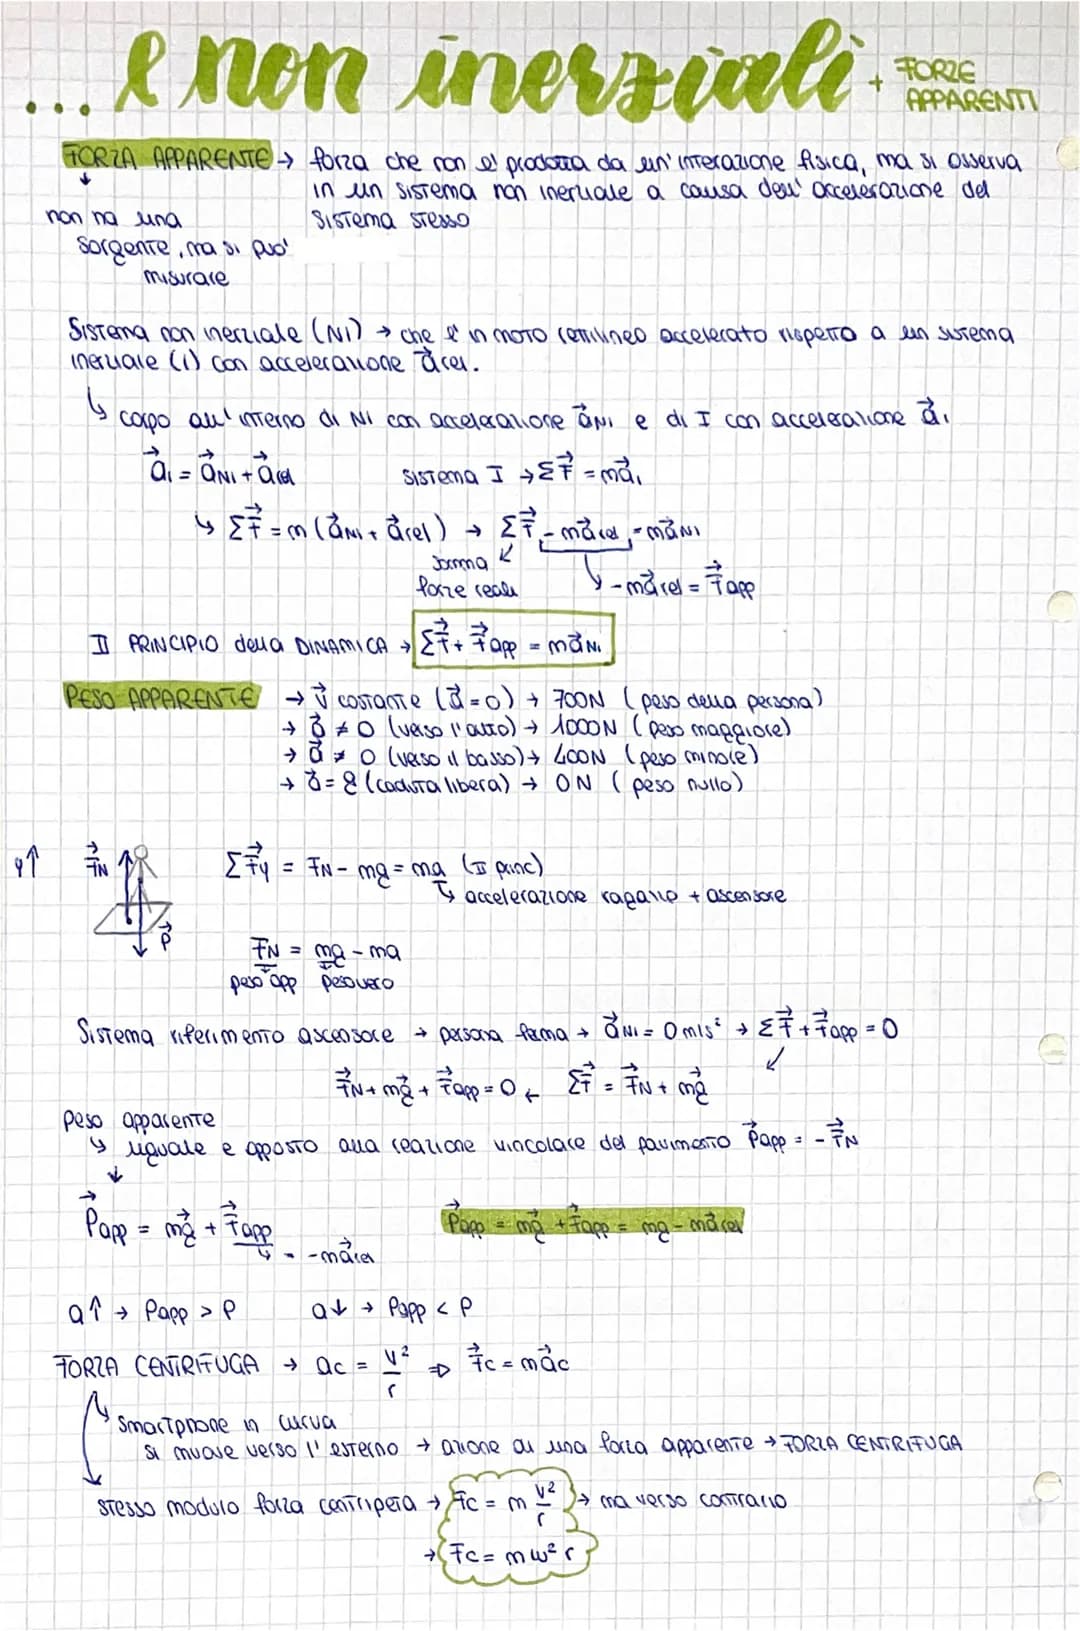 ... e non inerziali + FORZE APPARENTI
FORZA APPARENTE → forza che non e' prodotta da un'interazione fisica, ma si osserva
in un sistema non inerziale a causa dell'accelerazione del
sistema stesso
↓
non ha una
sorgente, ma si puo'
misurare
Sistema non inerziale (NI) → che e' in moto rettilineo accelerato rispetto a un sistema
inerziale (I) con accelerazione a⃗rel.
↳ corpo all'interno di NI con accelerazione a⃗NI e di I con accelerazione a⃗I
a⃗I = a⃗NI + a⃗rel   Sistema I → ΣF⃗ = ma⃗I
↳ ΣF⃗ = m (a⃗NI + a⃗rel) → ΣF⃗ - ma⃗rel = ma⃗NI
somma
forze reali   ↳ -ma⃗rel = F⃗app
II PRINCIPIO della DINAMICA → ΣF⃗ + F⃗app = ma⃗NI
PESO APPARENTE → v⃗ costante (a⃗ = 0) → 700N (peso della persona)
→ a⃗ ≠ 0 (verso l'alto) → 1000N (peso maggiore)
→ a⃗ ≠ 0 (verso il basso) → 400N (peso minore)
→ a⃗ = g (caduta libera) → 0N (peso nullo)
y↑ F⃗N   ΣF⃗y = FN - mg = ma (II princ)
↳ accelerazione ragazzo + ascensore
P⃗
FN = mg - ma
peso app   peso vero
Sistema riferimento ascensore → persona ferma → a⃗NI = 0 m/s² → ΣF⃗ + F⃗app = 0
F⃗N + mg⃗ + F⃗app = 0 ← ΣF⃗ = F⃗N + mg⃗
peso apparente
↳ uguale e opposto alla reazione vincolare del pavimento P⃗app = - F⃗N
↓
P⃗app = mg⃗ + F⃗app   P⃗app = mg⃗ + F⃗app = mg - ma⃗rel
↳ = -ma⃗rel
a↑ → Papp > P   a↓ → Papp < P
FORZA CENTRIFUGA → ac = v²/r ⇒ F⃗c = ma⃗c
↳ smartphone in curva
si muove verso l'esterno → azione di una forza apparente → FORZA CENTRIFUGA
stesso modulo forza centripeta → Fc = m v²/r → ma verso contrario
→ Fc = mω²r